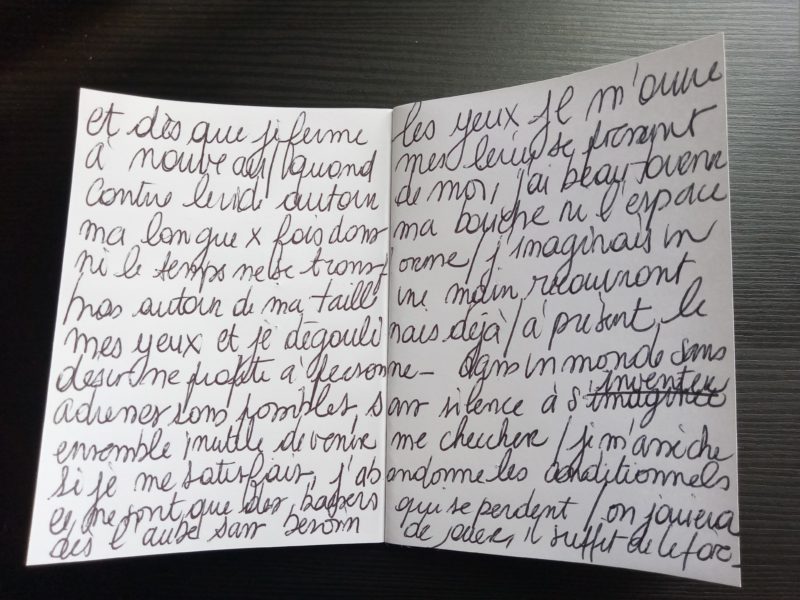 et dès que je ferme les yeux je m'ouvre
à nouveau / quand mes lèvres se prennent
contre le vide autour de moi, j'ai beau tourner
ma langue x fois dans ma bouche ni l'espace
ni le temps ne se transforme / j'imaginais un
bras autour de ma taille une main recouvrant
mes yeux et je dégoulinais déjà / à présent, le
désir ne profite à personne _ dans un monde sans
adresses sans possibles, sans silence à s'inventer
ensemble inutile de venir me chercher / je m'assèche
si je me satisfais, j'abandonne les conditionnels
ce ne sont que des baisers qui se perdent / on jouira
dès l'aube sans besoin de jouer, il suffit de le faire_